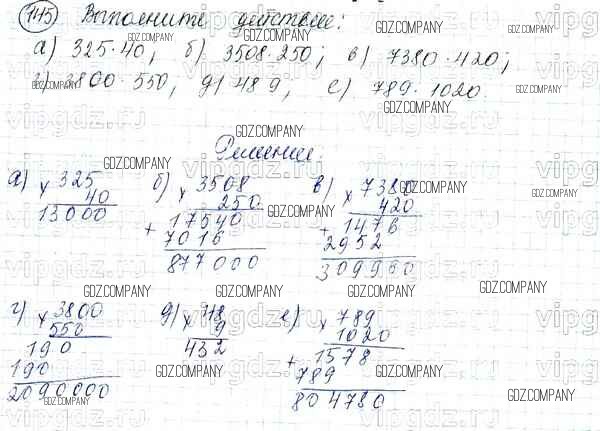 1145 Выполните действие:
а) 325·40; б) 3508·250; в) 7380·420;
г) 3800·550, д) 48 9, е) 789·1020.
Решение:
а) x 325 б) x 3508 в) x 7380
40 250 420
13000 + 17540 + 1476
7016 2952
877000 309960
г) x 3800 д) x 48 е) x 789
550 9 1020
190 432 + 1578
190 789
2090000 804780
GDZ.COMPANY
vipgdz.ru